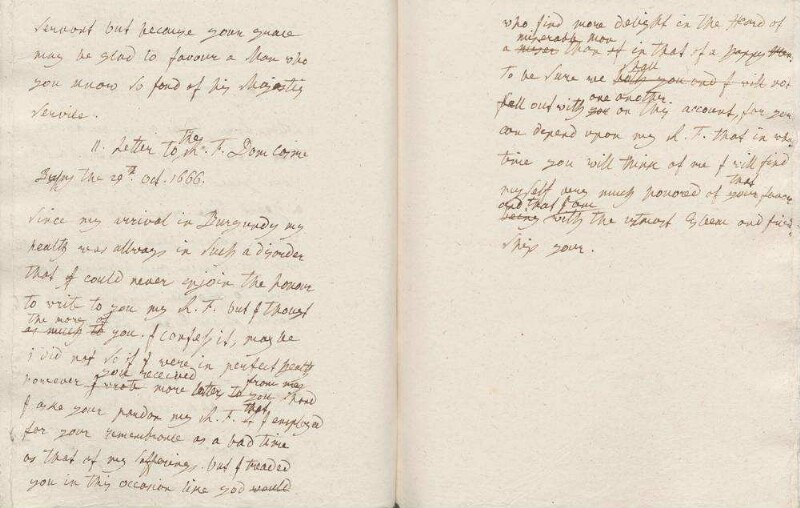 servant but because your grace
may be glad to favour a Man who
you know so fond of his Majestis
Service.
11. Letter to the R. F. Dom Cosme
the 29th Oct. 1666.
Since my arrival in Burgundy my
health was allways in Such a disorder
that I could never enjoin the honour
to write to you my R. F. but I thougt
the more of
as much to you. I confess it, may be
I did not so if I were in perfect health
you received from my
however I wrote more letter to you hand
I aske your pardon my R. F. that
if I employed
for your remembrance as a bad time
as that of my Sofferings. but I treaded
you in this occasion like god would
who find more delight in the Heard of
miserable man
a miser than if in that of a happy
Shall
to be sure we both you and I will not
one another
fall out with you on this account, for you
can depend upon my R. F. that in
time you will think of me I will find
that
myself very much honored of your favour
and that I am
being with the utmost Esteem and frid
Ship your.